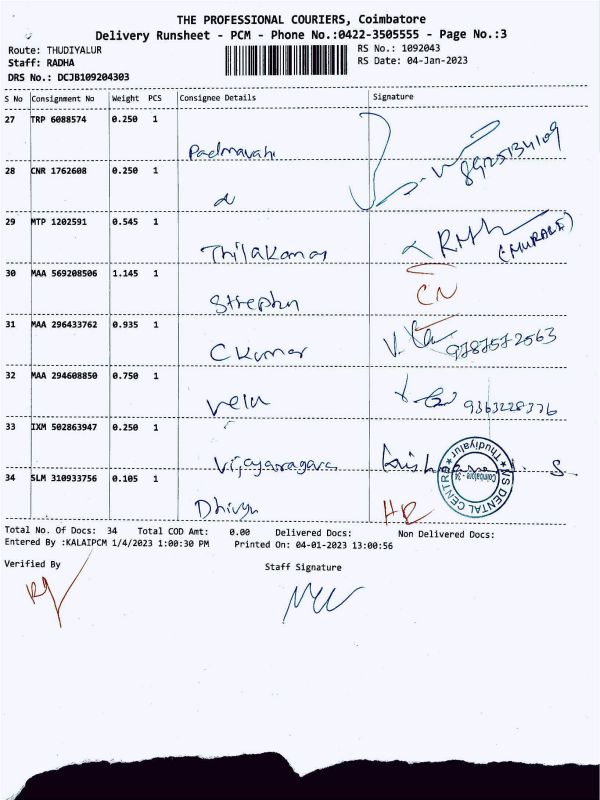 THE PROFESSIONAL COURIERS, Coimbatore
Delivery Runsheet - PCM - Phone No.:0422-3505555 - Page No.:3
Route: THUDIYALUR
RS No.: 1092043
Staff: RADHA
RS Date: 04-Jan-2023
DRS No.: DCJB109204303
S No Consignment No Weight PCS Consignee Details Signature
27 TRP 6088574 0.250 1
Padmavathi
28 CNR 1762608 0.250 1
29 MTP 1202591 0.545 1
Thilakamas
(MURALI)
30 MAA 569208506 1.145 1
Strephn CN
31 MAA 296433762 0.935 1
C Kumar 9787572563
32 MAA 294608850 0.750 1
Velu 9363228376
33 IXM 502863947 0.250 1
Vijayaragava S
34 SLM 310933756 0.105 1
Dhivya HR
VS DENTAL CENTRE
Thudiyalur
Coimbatore - 34
Total No. Of Docs: 34 Total COD Amt: 0.00 Delivered Docs: Non Delivered Docs:
Entered By :KALAIPCM 1/4/2023 1:00:30 PM Printed On: 04-01-2023 13:00:56
Verified By Staff Signature